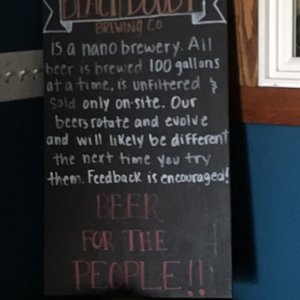 BREWING CO
is a nano brewery. All
beer is brewed 100 gallons
at a time, is unfiltered &
sold only on-site. Our
beers rotate and evolve
and will likely be different
the next time you try
them. Feedback is encouraged!
BEER
FOR THE
PEOPLE!!